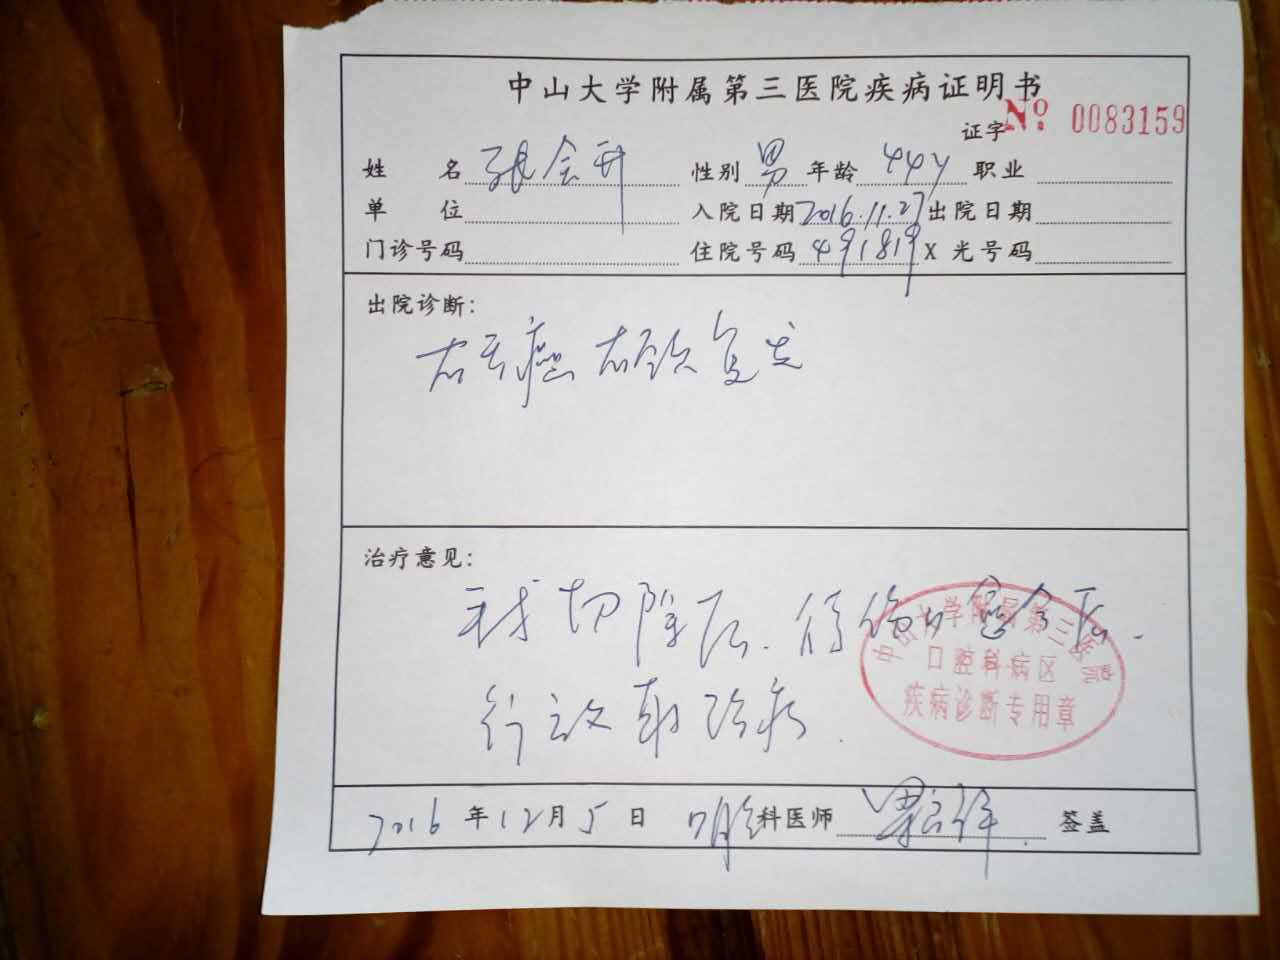 中山大学附属第三医院疾病证明书
证字 No: 0083159
姓名 张会升 性别 男 年龄 44y 职业
单位 入院日期 2016.11.27 出院日期
门诊号码 住院号码 491819 X光号码
出院诊断:
右舌癌 右颌复发
治疗意见:
切除后. 愈合后.
行放射治疗.
中山大学附属第三医院
口腔科病区
疾病诊断专用章
2016年12月5日 口腔科医师 签盖